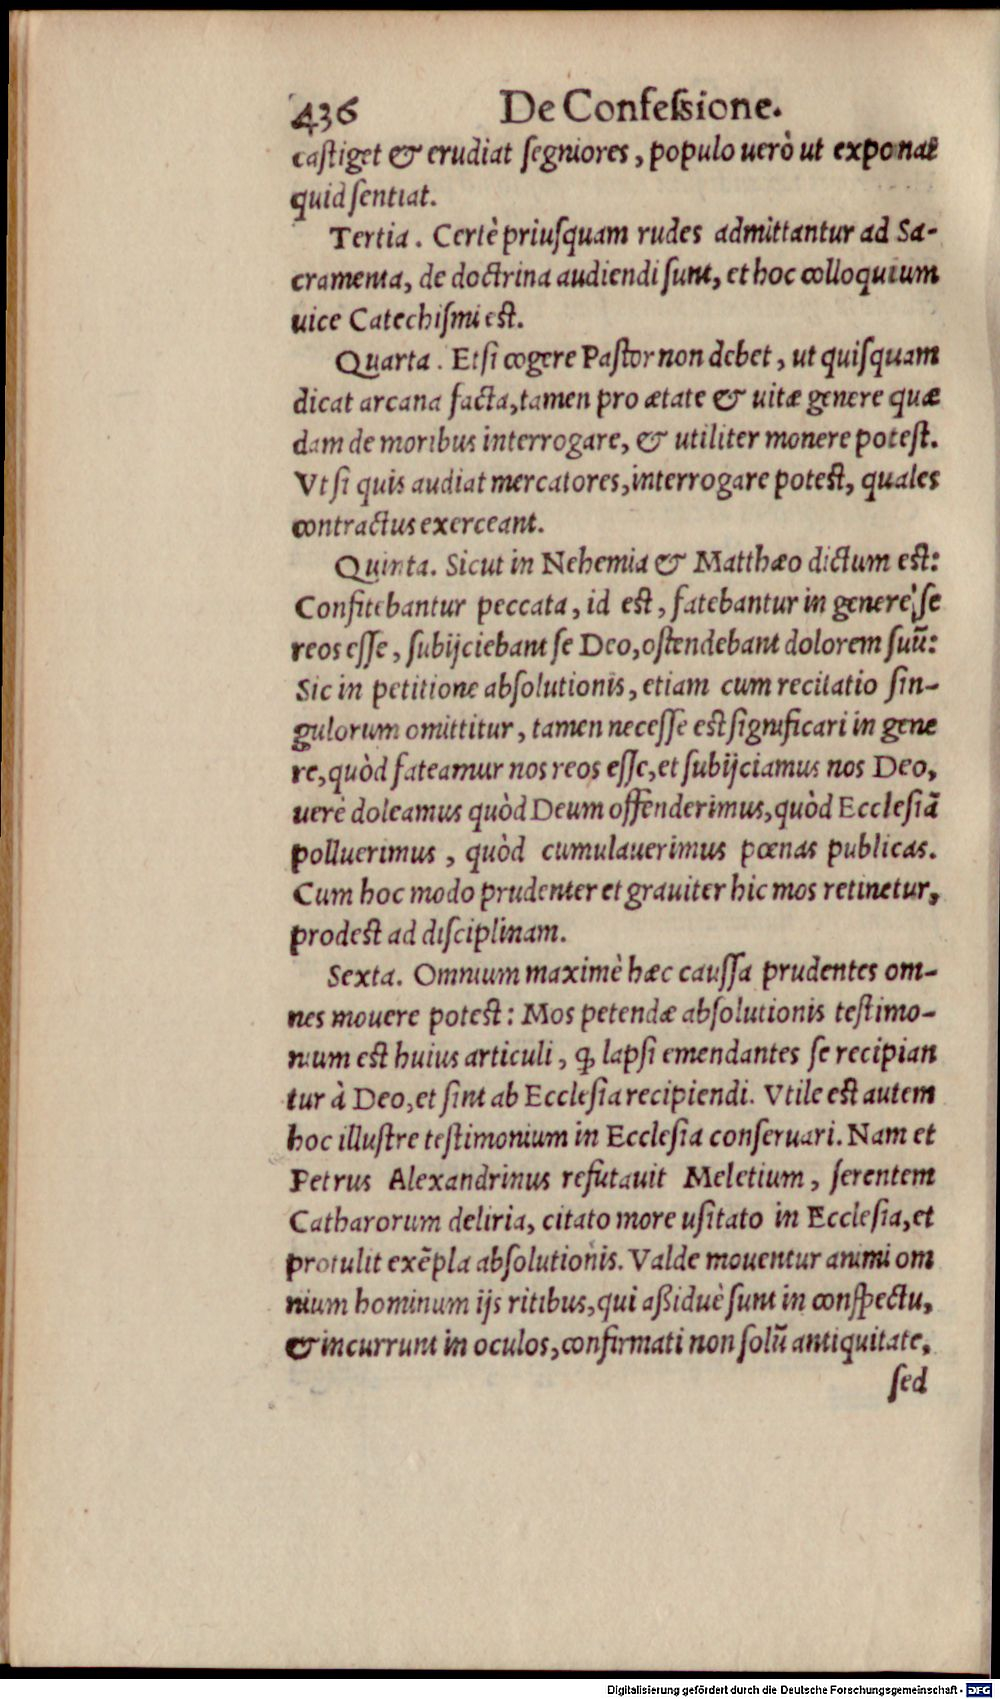 436 De Confeßione.
caſtiget & erudiat ſegniores, populo uerò ut exponat
quid ſentiat.
Tertia. Certè priuſquam rudes admittantur ad Sa-
cramenta, de doctrina audiendi ſunt, et hoc colloquium
uice Catechiſmi est.
Quarta. Etſi cogere Paſtor non debet, ut quiſquam
dicat arcana facta, tamen pro ætate & uitæ genere quæ
dam de moribus interrogare, & utiliter monere poteſt.
Vt ſi quis audiat mercatores, interrogare potest, quales
contractus exerceant.
Quinta. Sicut in Nehemia & Matthæo dictum est:
Confitebantur peccata, id est, fatebantur in genere ſe
reos eſſe, ſubijciebant ſe Deo, oſtendebant dolorem ſuū:
Sic in petitione abſolutionis, etiam cum recitatio ſin-
gulorum omittitur, tamen neceſſe est ſignificari in gene
re, quòd fateamur nos reos eſſe, et ſubijciamus nos Deo,
uerè doleamus quòd Deum offenderimus, quòd Eccleſiā
polluerimus, quòd cumulauerimus pœnas publicas.
Cum hoc modo prudenter et grauiter hic mos retinetur,
prodest ad diſciplinam.
Sexta. Omnium maximè hæc cauſſa prudentes om-
nes mouere potest: Mos petendæ abſolutionis teſtimo-
nium est huius articuli, ꝙ lapſi emendantes ſe recipian
tur à Deo, et ſint ab Eccleſia recipiendi. Vtile est autem
hoc illuſtre teſtimonium in Eccleſia conſeruari. Nam et
Petrus Alexandrinus refutauit Meletium, ſerentem
Catharorum deliria, citato more uſitato in Eccleſia, et
protulit exēpla abſolutionis. Valde mouentur animi om
nium hominum ijs ritibus, qui aßiduè ſunt in conſpectu,
& incurrunt in oculos, confirmati non ſolū antiquitate,
ſed
Digitalisierung gefördert durch die Deutsche Forschungsgemeinschaft - DFG